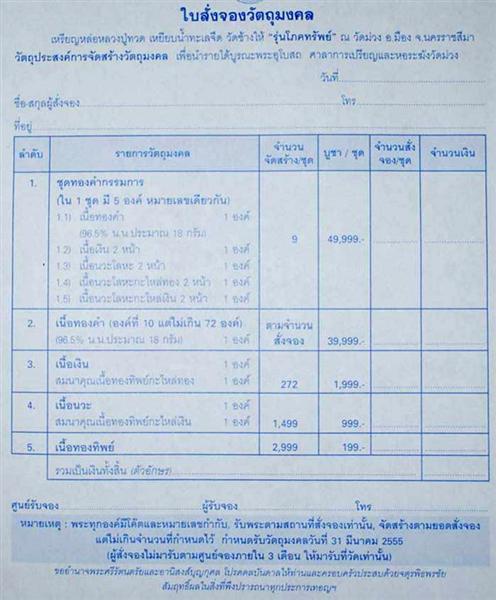 ใบสั่งจองวัตถุมงคล
เหรียญหล่อหลวงปู่ทวด เหยียบน้ำทะเลจืด วัดช้างให้ "รุ่นโภคทรัพย์" ณ วัดม่วง อ.เมือง จ.นครราชสีมา
วัตถุประสงค์การจัดสร้างวัตถุมงคล เพื่อนำรายได้บูรณะพระอุโบสถ ศาลาการเปรียญและหอระฆังวัดม่วง
วันที่
ชื่อ-สกุลผู้สั่งจอง โทร
ที่อยู่
ลำดับ รายการวัตถุมงคล จำนวนจัดสร้าง/ชุด บูชา / ชุด จำนวนสั่งจอง/ชุด จำนวนเงิน
1. ชุดทองคำกรรมการ
(ใน 1 ชุด มี 5 องค์ หมายเลขเดียวกัน)
1.1) เนื้อทองคำ 1 องค์
(96.5% น.น.ประมาณ 18 กรัม) 9 49,999.-
1.2) เนื้อเงิน 2 หน้า 1 องค์
1.3) เนื้อนวะโลหะ 2 หน้า 1 องค์
1.4) เนื้อนวะโลหะกะไหล่ทอง 2 หน้า 1 องค์
1.5) เนื้อนวะโลหะกะไหล่เงิน 2 หน้า 1 องค์
2. เนื้อทองคำ (องค์ที่ 10 แต่ไม่เกิน 72 องค์) ตามจำนวน
(96.5% น.น.ประมาณ 18 กรัม) 1 องค์ สั่งจอง 39,999.-
3. เนื้อเงิน 1 องค์
สมนาคุณเนื้อทองทิพย์กะไหล่ทอง 1 องค์ 272 1,999.-
4. เนื้อนวะ 1 องค์
สมนาคุณเนื้อทองทิพย์กะไหล่เงิน 1 องค์ 1,499 999.-
5. เนื้อทองทิพย์ 1 องค์ 2,999 199.-
รวมเป็นเงินทั้งสิ้น (ตัวอักษร)
ศูนย์รับจอง ผู้รับจอง โทร
หมายเหตุ : พระทุกองค์มีโค๊ตและหมายเลขกำกับ, รับพระตามสถานที่สั่งจองเท่านั้น, จัดสร้างตามยอดสั่งจอง
แต่ไม่เกินจำนวนที่กำหนดไว้ กำหนดรับวัตถุมงคลวันที่ 31 มีนาคม 2555
(ผู้สั่งจองไม่มารับตามศูนย์จองภายใน 3 เดือน ให้มารับที่วัดเท่านั้น)
ขออำนาจพระศรีรัตนตรัยและอานิสงส์บุญกุศล โปรดดลบันดาลให้ท่านและครอบครัวประสบด้วยจตุรพิธพรชัย
สัมฤทธิ์ผลในสิ่งที่พึงปรารถนาทุกประการเทอญฯ